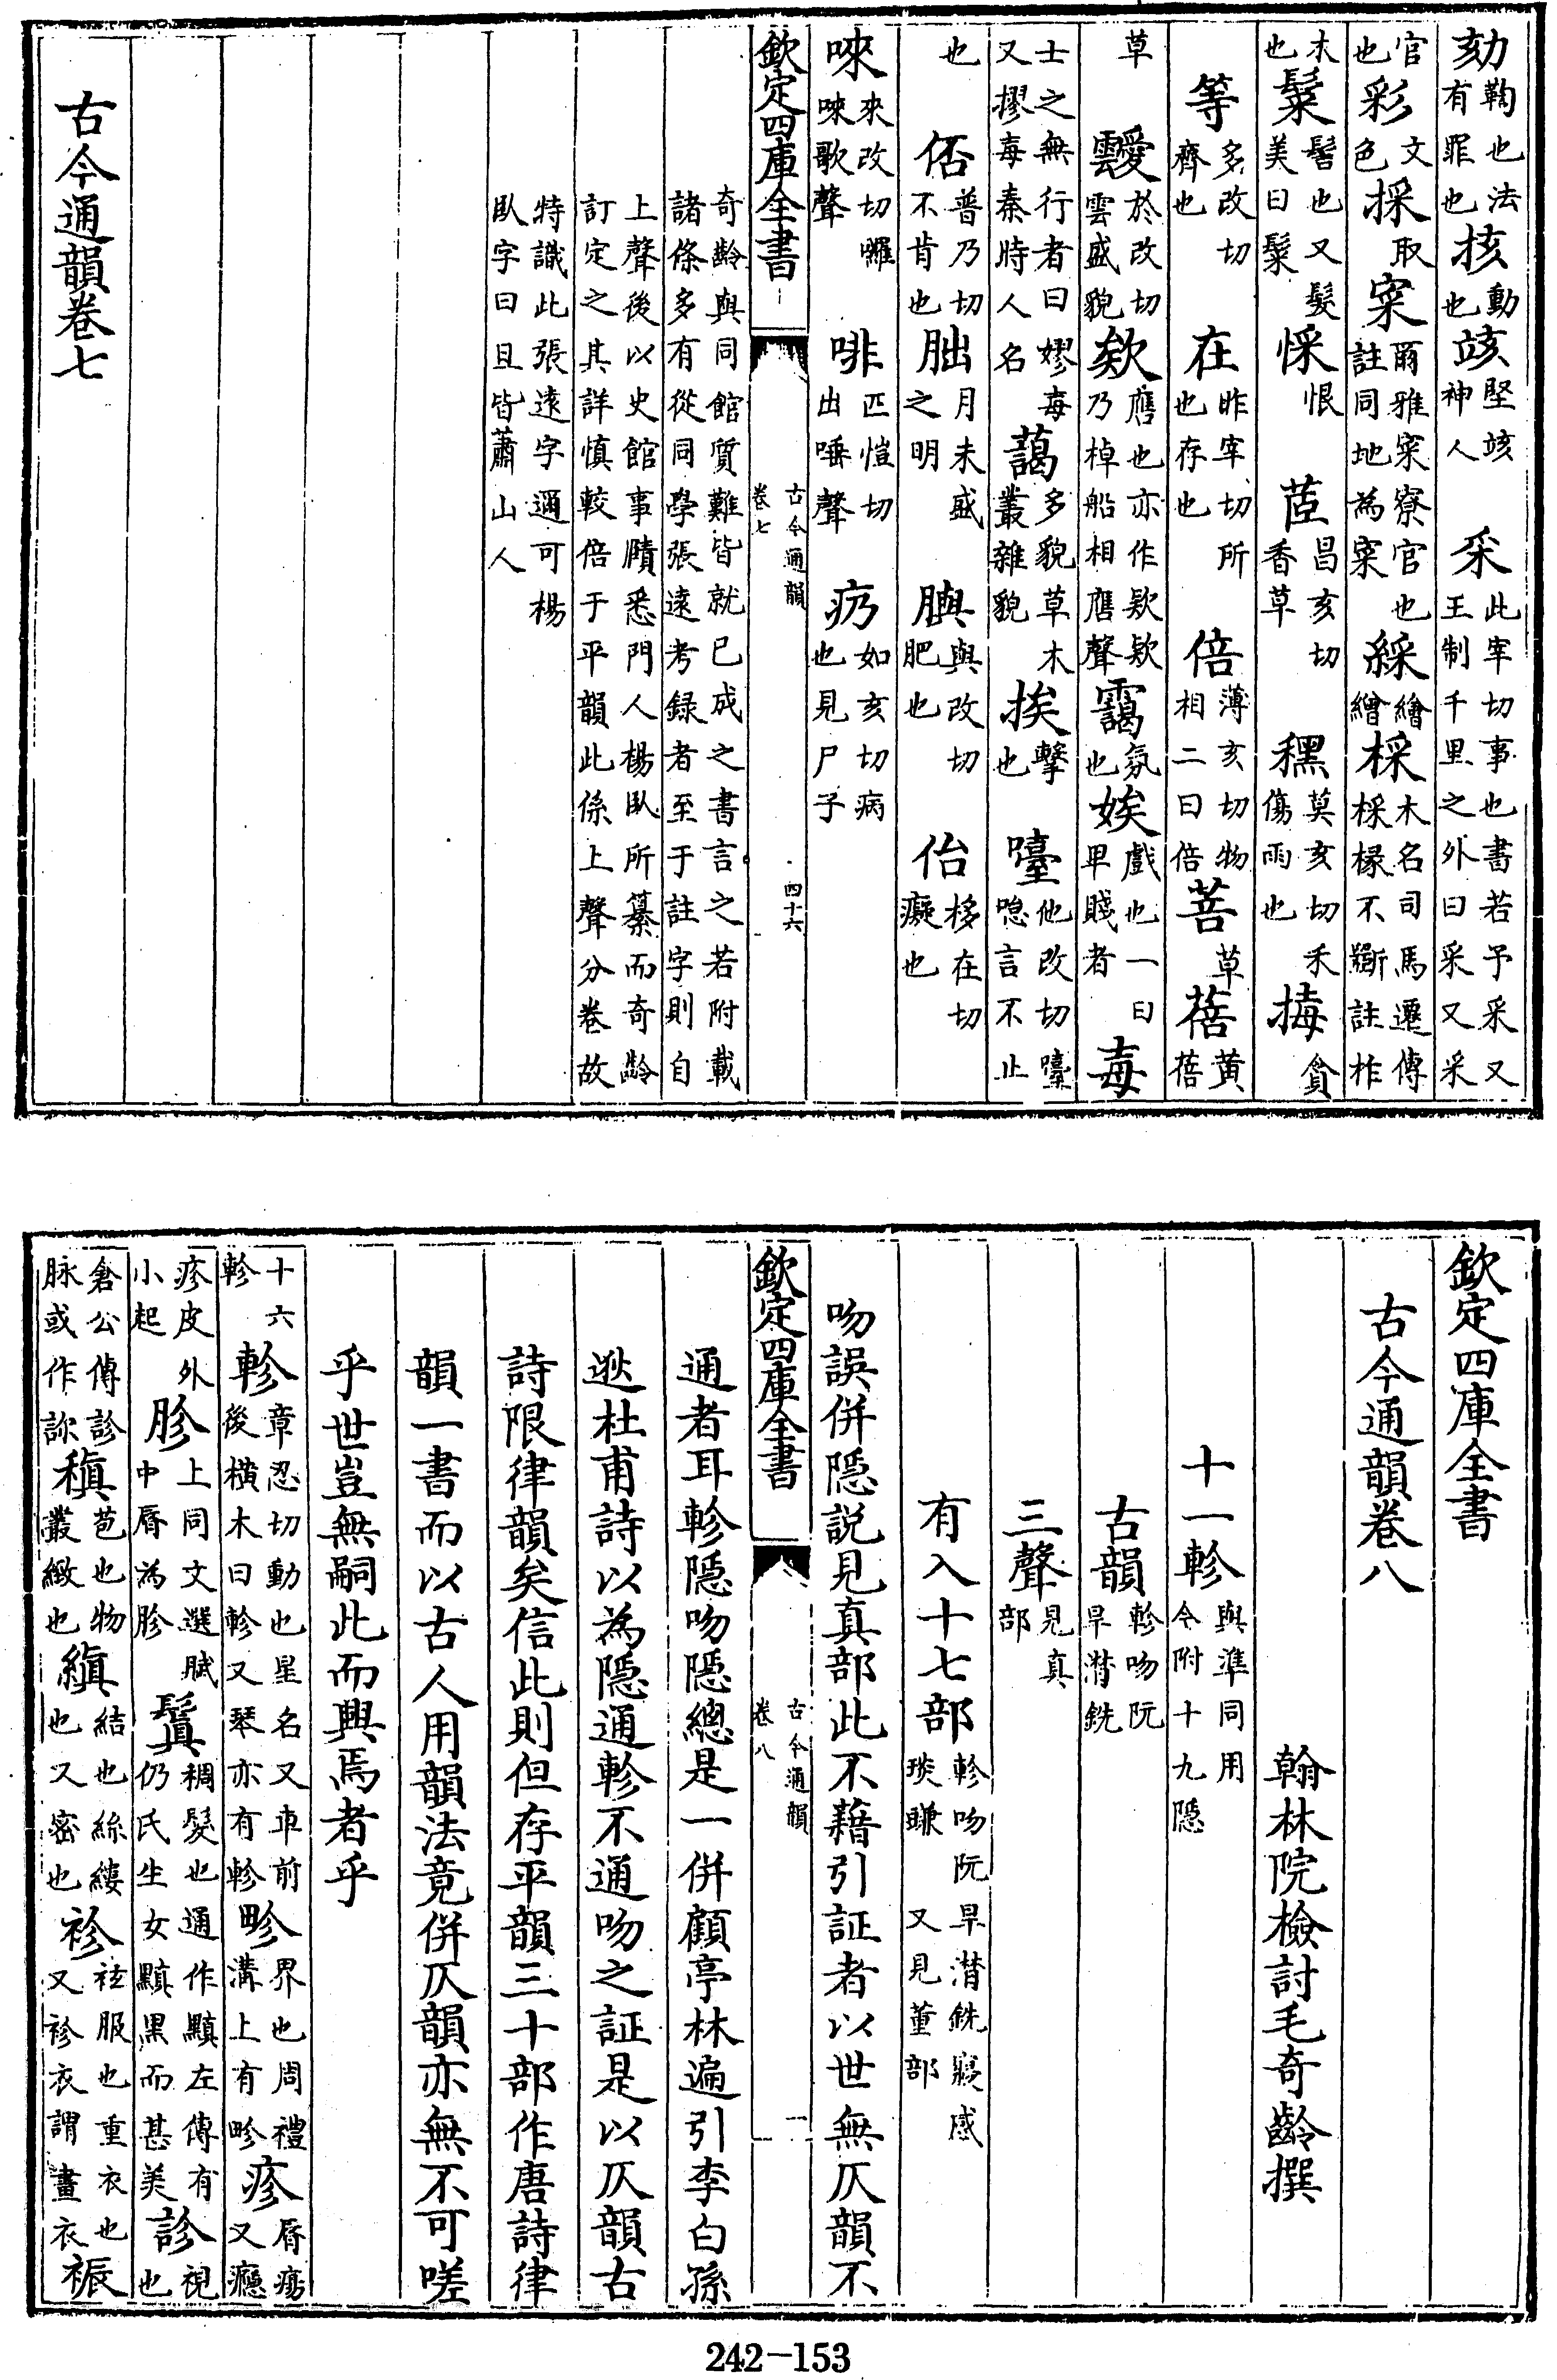 劾鞫也法有罪也㧡動也䇋堅䇋神人采此宰切事也書若予采又王制千里之外曰采又采
官也彩文色採取寀爾雅寀寮官也註同地為寀綵繪繒棌木名司馬遷傳棌椽不斵註柞
木也鬕髻也又髮美曰鬕㥒恨茝昌亥切香草䆀莫亥切禾傷雨也挴貪
等多改切齊也在昨宰切所也存也倍薄亥切物相二曰倍菩草蓓黄蓓
草靉於改切雲盛貌欸譍也亦作欵欵乃棹船相譍聲靄氛也娭戲也一曰卑賤者毐
士之無行者曰嫪毐又摎毐秦時人名藹多貌草木叢雜貌挨擊也嬯他改切嬯唸言不止
也俖普乃切不肯也朏月未盛之明𦡱與改切肥也佁移在切癡也
唻來改切囉唻歌聲啡匹愷切出唾聲疓如亥切病也見尸子
欽定四庫全書 古今通韻卷七 四十六
奇齡與同館質難皆就已成之書言之若附載
諸條多有從同學張遠考録者至于註字則自
上聲後以史館事賾悉門人楊臥所纂而奇齡
訂定之其詳慎較倍于平韻此係上聲分卷故
特識此張遠字邇可楊
臥字曰且皆蕭山人
古今通韻卷七
欽定四庫全書
古今通韻卷八
翰林院檢討毛奇齡撰
十一軫與準同用今附十九隱
古韻軫吻阮旱潸銑
三聲見真部
有入十七部軫吻阮旱潸銑寢感琰豏又見董部
吻誤併隱説見真部此不藉引証者以世無仄韻不
欽定四庫全書 古今通韻卷八 一
通者耳軫隱吻隱總是一併顧亭林遍引李白孫
逖杜甫詩以為隱通軫不通吻之証是以仄韻古
詩限律韻矣信此則但存平韻三十部作唐詩律
韻一書而以古人用韻法竟併仄韻亦無不可嗟
乎世豈無嗣此而興焉者乎
十六軫軫章忍切動也星名又車前後横木曰軫又琴亦有軫畛界也周禮溝上有畛疹脣瘍又癮
疹皮外小起胗上同文選賦中脣為胗鬒稠髮也通作黰左傳有仍氏生女黰黒而甚美診視也
倉公傳診脉或作䛘稹苞也物叢緻也縝結也絲縷也又密也袗袨服也重衣也又袗衣謂畫衣裖
242-153